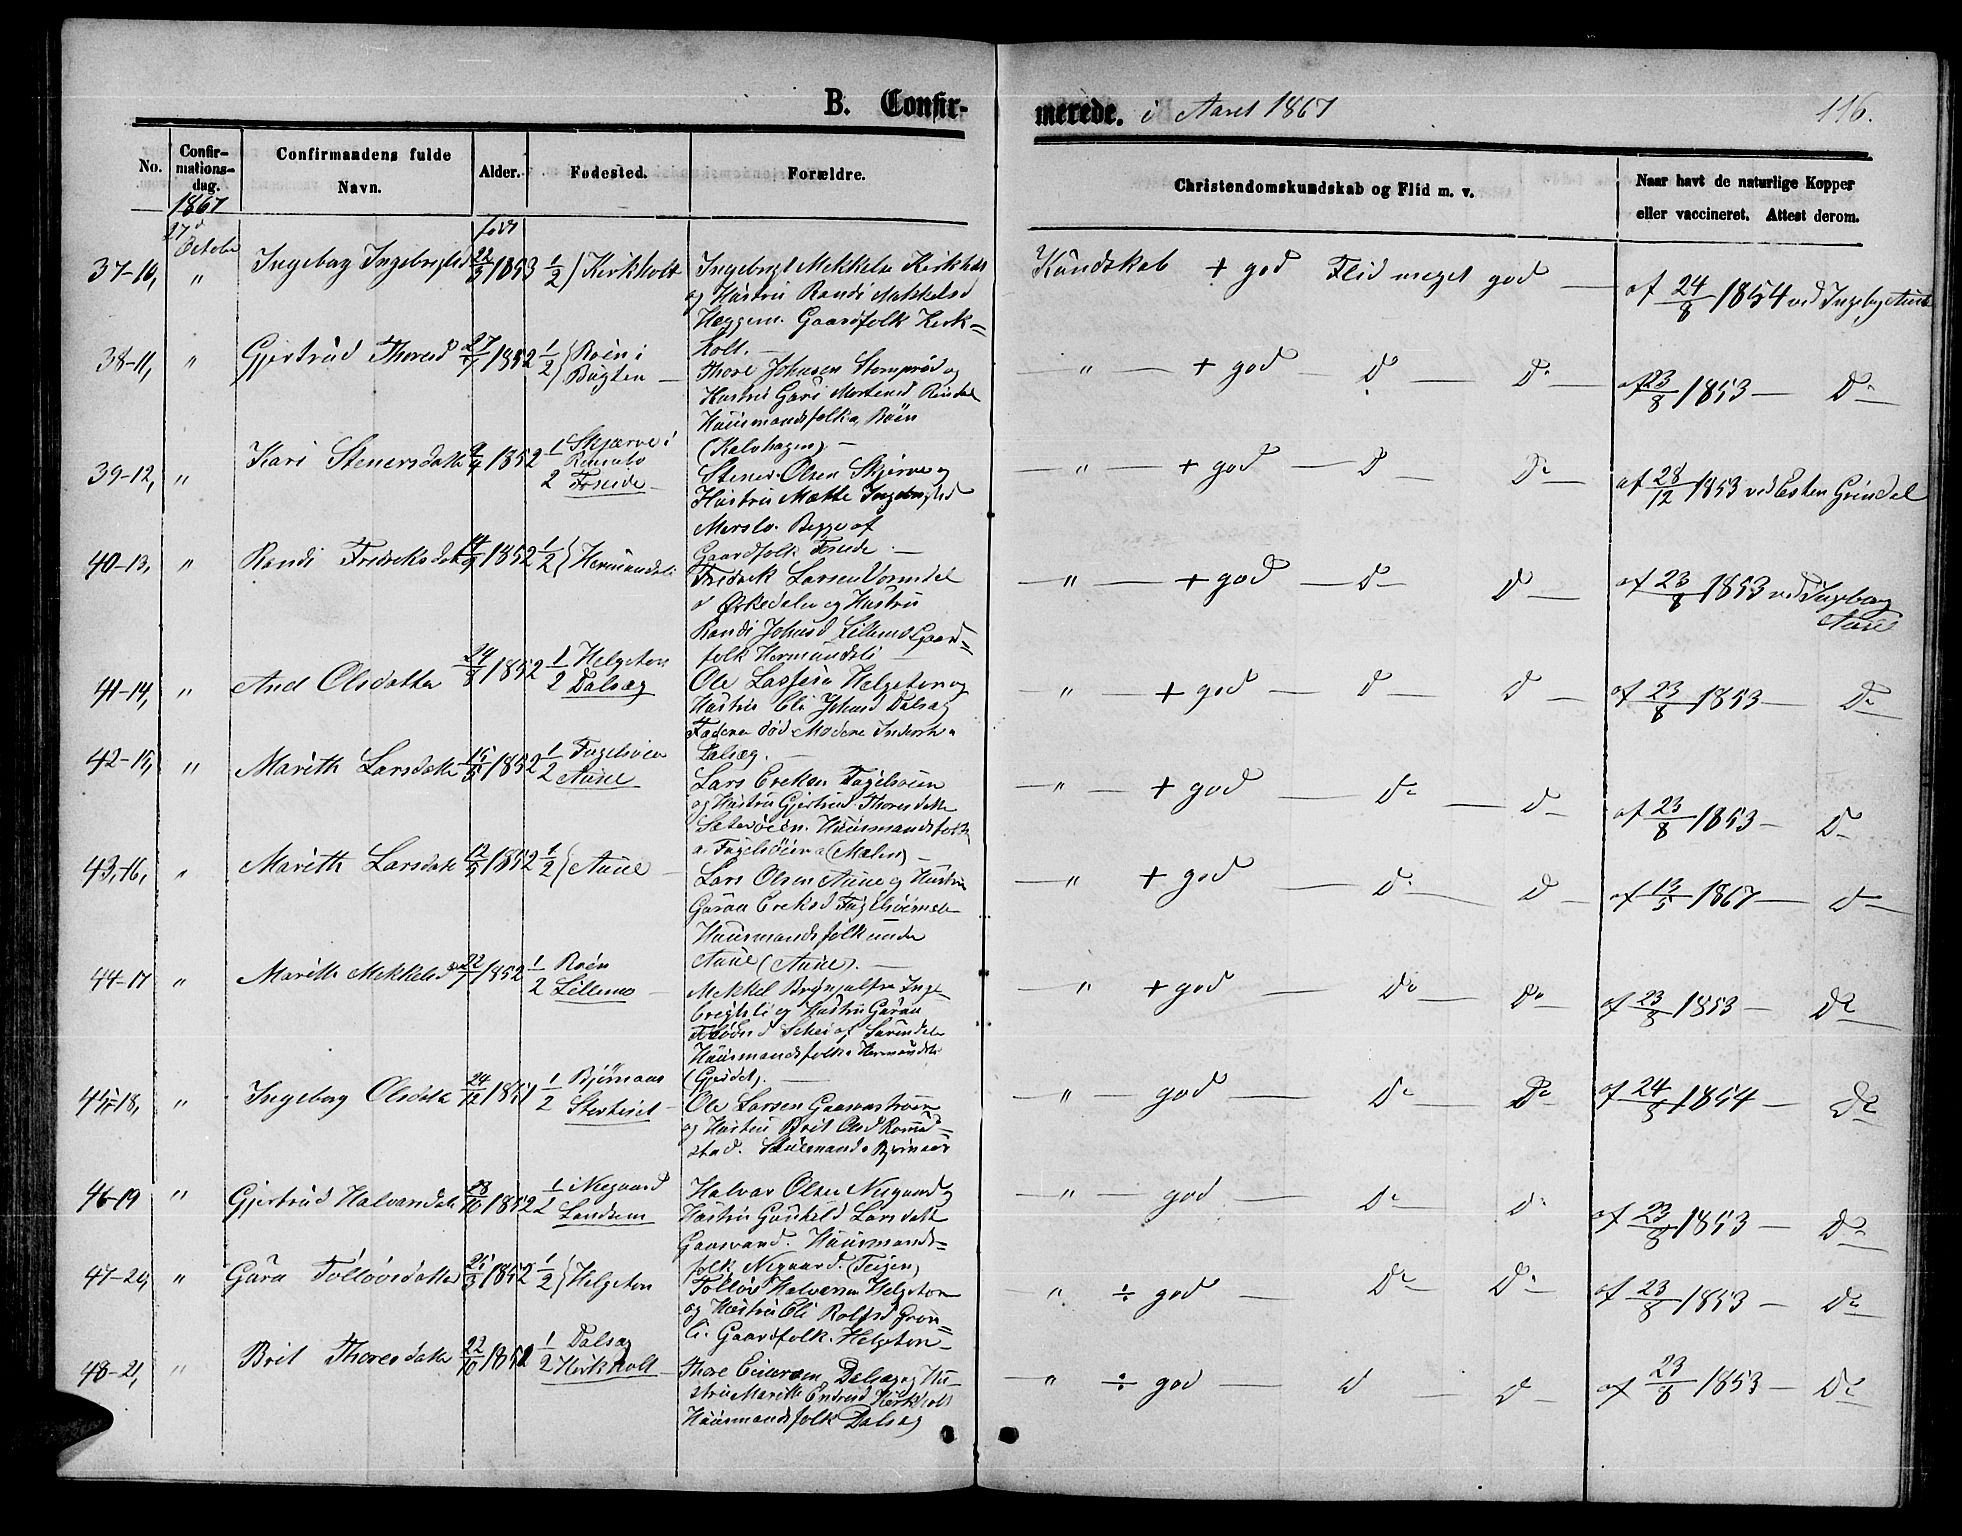 B. Confir-
merede. i Aaret 1867
116.
No.
Confir-
mations-
dag.
Confirmandens fulde
Navn.
Alder.
Fødested.
Forældre.
Christendomskundskab og Flid m. v.
Naar havt de naturlige Kopper
eller vaccineret. Attest derom.
1867
født
27de
October
37-10, " Ingeborg Ingebrigtsd 22/3 1853 1/2 } Kirkholt
Ingebrigt Mekkelsen Kirkholt
og Hustru Randi Mekkelsd
Heggem. Gaardfolk Kirk=
holt. —
Kundskab + god Flid meget god —
af 24/8 1854 ved Ingeb Aune
38-11, " Gjertrud Thoresd 27/7 1852 1/2 } Roen i
Bugten —
Thore Johnsen Stomprød og
Hustru Guri Mortensd Rindal
Huusmandsfolk Roen
(Kalvhagen) —
— " — + god — D — D° —
af 23/8 1853 — D° —
39-12, " Kari Stenersdatter 9/4 1852 1/2 Skjærve i
Romsbo
Foseide —
Stener Olsen Skjerve og
Hustru Mætte Ingebrigtsd
Merslo. Begge af
Gaardfolk Foseide —
— " — + god — D — D° —
af 28/12 1853 ved Esten Grindal
40-13, " Randi Fredriksdatt 14/9 1852 1/2 } Hermandsli
Fredrik Larsen Vormdal
af Orkedalen og Hustru
Randi Johnsd Lillemo Gaard=
folk Hermundsli —
— " — + god — D° — D° —
af 23/8 1853 ved Ingeborg
Aune
41-14, " Ane Olsdatter 24/8 1852 1/2 Helgeton
Dalsæg
Ole Larsen Helgeton og
Hustru Eli Johnsd Dalsæg
Faderen død Moderen Inderst
Dalsæg. —
" — + god — D — D —
af 23/8 1853 — D° —
42-15, " Marith Larsdatt 15/8 1852 1/2 Fugelsøien
Aune
Lars Ereksen Fugelsøien
og Hustru Gjertrud Thoresdatter
Sæterøien. Huusmandsfolk
Fugelsøien (Mælen) —
— " — + god — D° — D —
af 23/8 1853 — D —
43-16, " Marith Larsdatt 12/9 1852 1/2 } Aune —
Lars Olsen Aune og Hustru
Guraa Ereksd Fugelsøien
Huusmandsfolk under
Aune (Aune). —
— " + god — D° — D —
af 13/5 1867 — D —
44-17 " Marith Mekkelsd 22/7 1852 1/2 Roen
Lillemo —
Mekkel Brynjulfsen Inge-
brigtsli og Hustru Guraa
Huusmandsfolk Hermundsli
(Gjerdet). —
" — + god — D° — D° —
af 23/8 1853 — D° —
45-18, " Ingeborg Olsdatt 24/12 1851 1/2 Bjørnaas
Ole Larsen Gaasvastrøen
og Hustru Brit Olsd Romund=
stad. Huusmand Bjørnaas
" — god — D° — D° —
af 24/8 1854 — D° —
46-19 " Gjertrud Halvarsdatt 28/10 1852 1/2 i Nygaard
Landsem
Halvar Olsen Nygaard og
Hustru Gunhild Larsdatt
Gaasvand. Huusmands=
folk Nygaard. (Teigen)
— " — god — D° — D° —
af 23/8 1853 — D° —
47-20, " Gura Tolløvsdatter 25/3 1852 1/2 } Helgeton
Tolløv Halvorsen Helgeton
og Hustru Eli Rolfsd Grøn=
li. Gaardfolk. Helgeton —
— " ÷ god — D° — D° —
af 23/8 1853 — D° —
48-21, " Brit Thoresdatter 22/10 1852 1/2 Dalsæg
Kirkholt —
Thore Einarsen Dalsæg og Hu-
stru Marith Endresd Kirkholt
Huusmandsfolk Dalsæg
— " ÷ god — D — D —
af 23/8 1853 — D° —